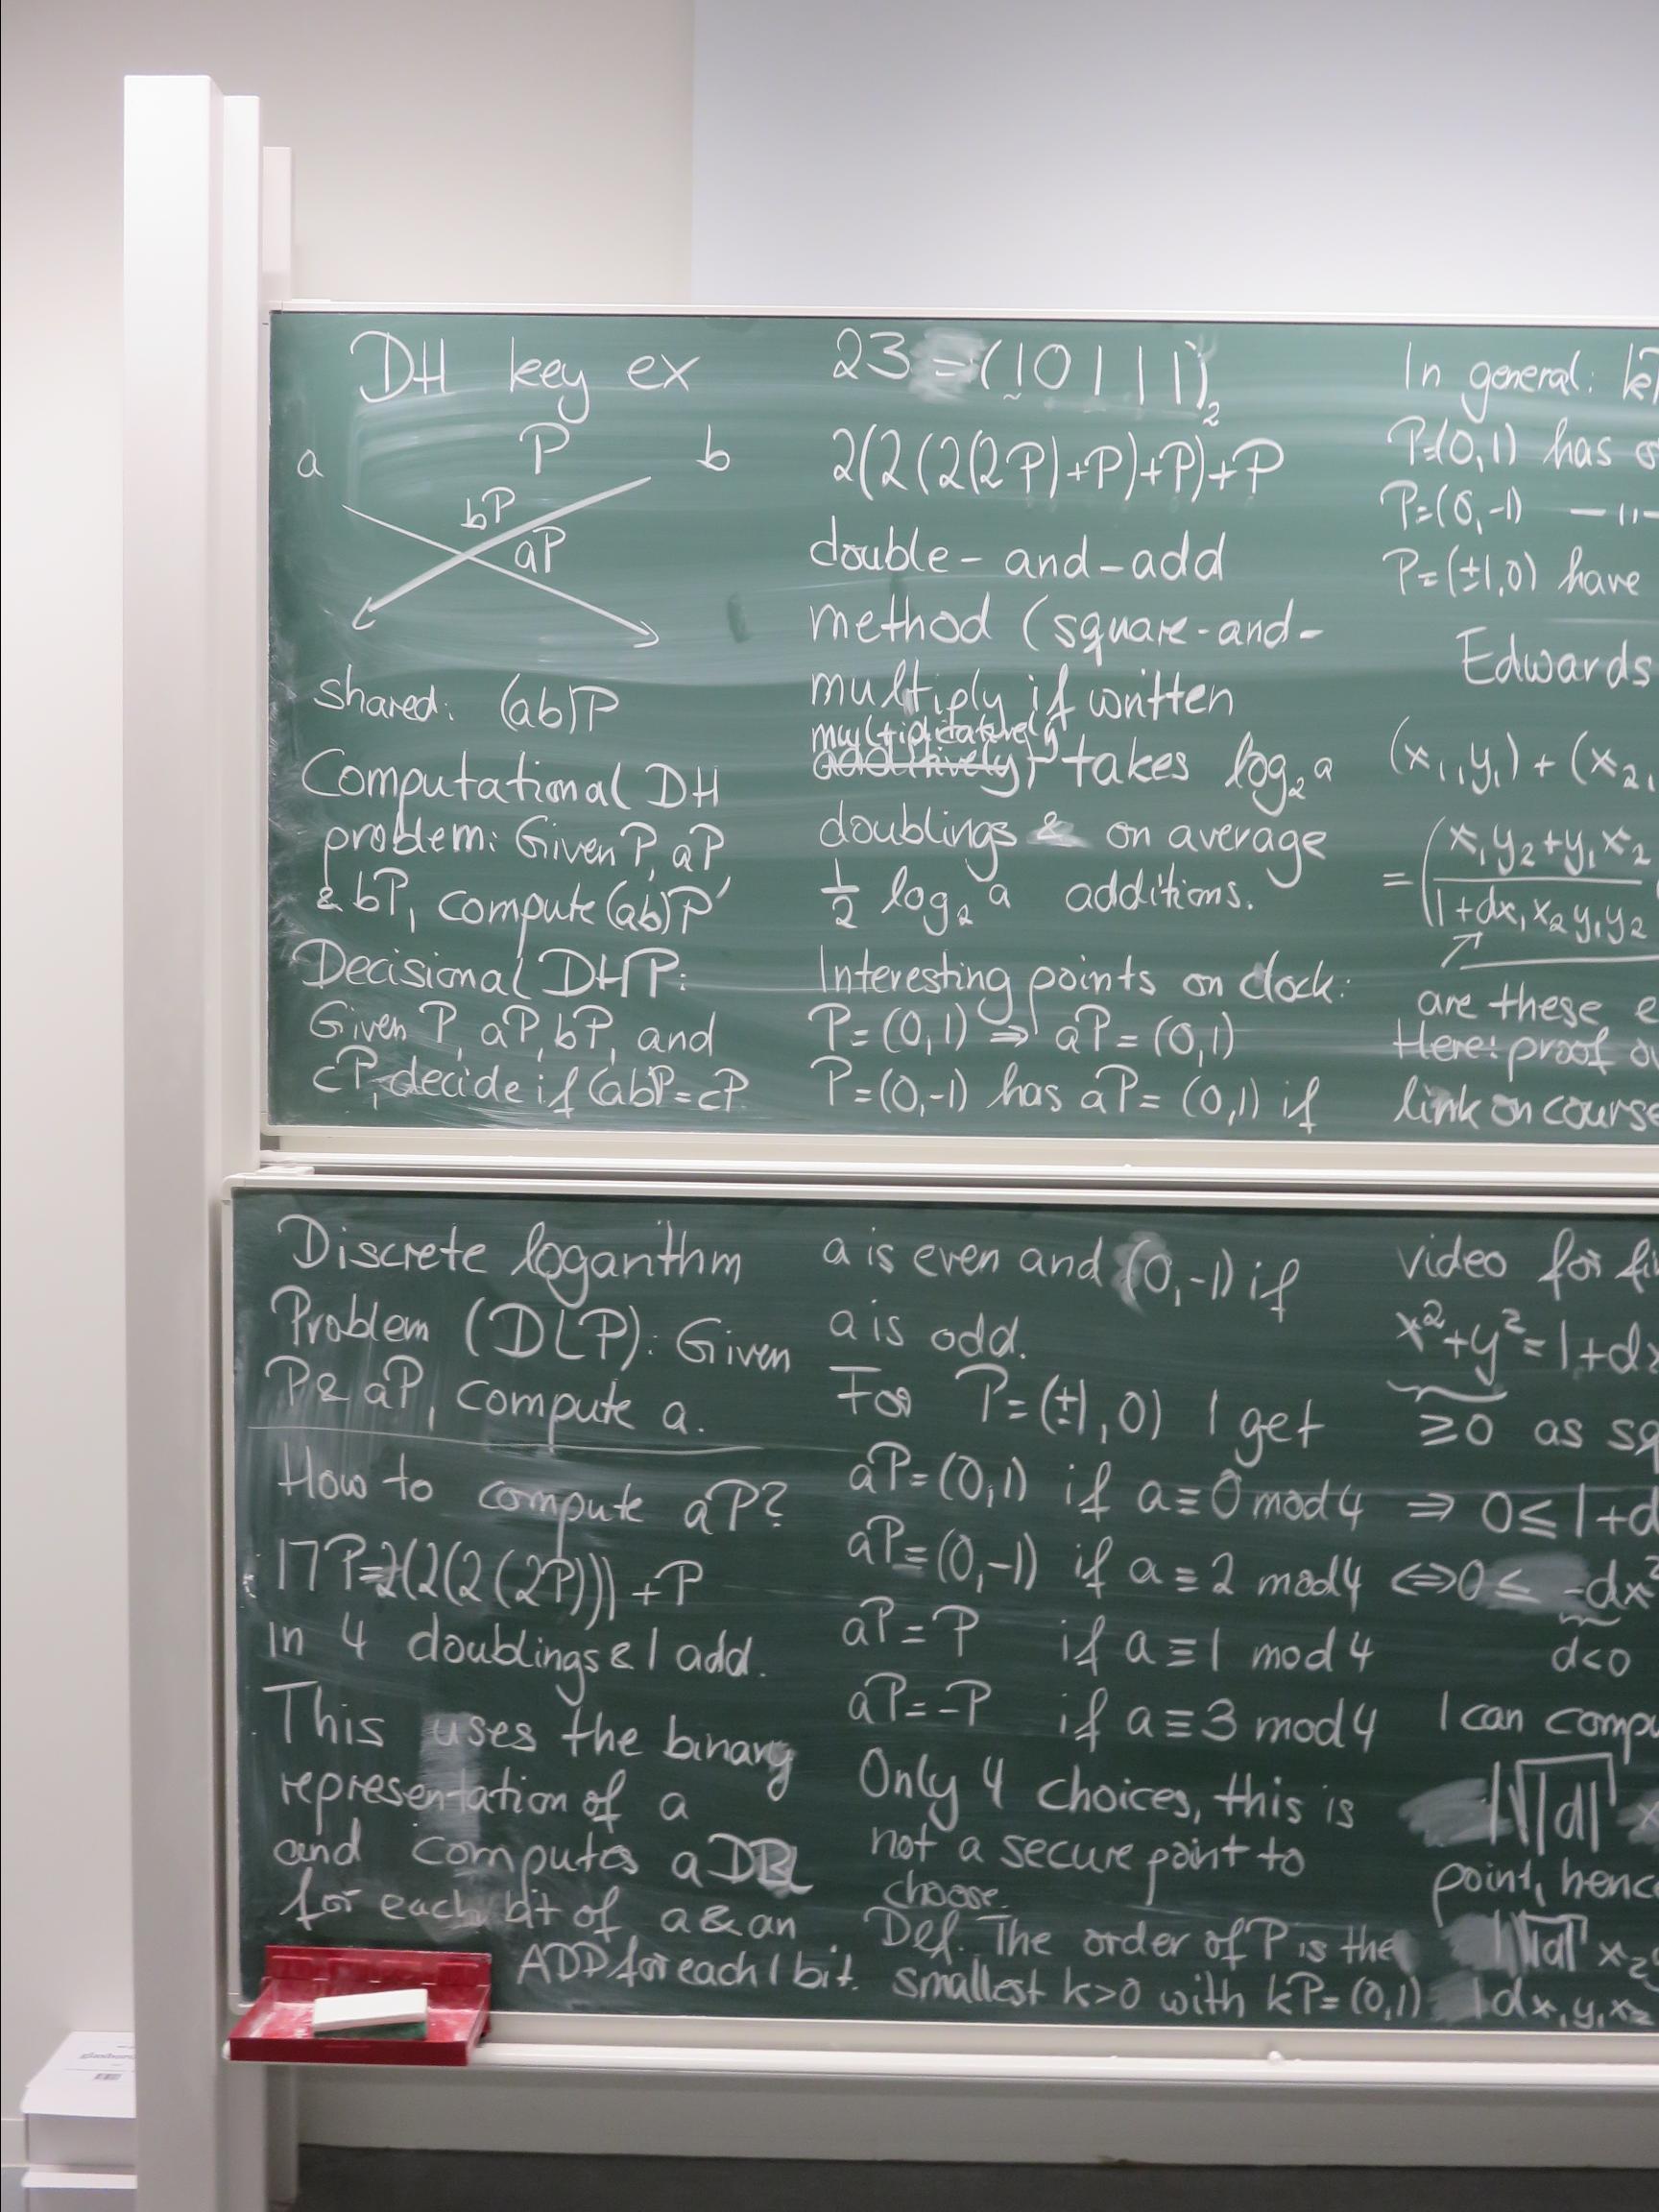 DH key ex
P
a
b
bP
aP
shared: (ab)P
Computational DH
problem: Given P, aP
& bP, compute (ab)P
Decisional DHP:
Given P, aP, bP, and
cP, decide if (ab)P=cP
Discrete logarithm
Problem (DLP): Given
P & aP, compute a.
How to compute aP?
17P=2(2(2(2P)))+P
in 4 doublings & 1 add.
This uses the binary
representation of a
and computes a DBL
for each bit of a & an
ADD for each 1 bit.
23 = (10111)₂
2(2(2(2P)+P)+P)+P
double-and-add
method (square-and-
multiply if written
multiplicatively) takes log₂ a
doublings & on average
1/2 log₂ a additions.
Interesting points on clock:
P=(0,1) ⇒ aP=(0,1)
P=(0,-1) has aP=(0,1) if
a is even and (0,-1) if
a is odd.
For P=(±1,0) I get
aP=(0,1) if a≡0 mod 4
aP=(0,-1) if a≡2 mod 4
aP=P if a≡1 mod 4
aP=-P if a≡3 mod 4
Only 4 choices, this is
not a secure point to
choose.
Def. The order of P is the
smallest k>0 with kP=(0,1)
In general:
P=(0,1) has
P=(0,-1) —॥—
P=(±1,0) have
Edwards
(x₁,y₁)+(x₂,
=(x₁y₂+y₁x₂
1+dx₁x₂y₁y₂
are these
Here: proof
link on course
video for
x²+y²=1+dx
≥0 as
⇒ 0≤1+d
⇔0≤ -dx²
d<0
I can
√|d|
point, hence
√|d| x₂
dx₁y₁x₂